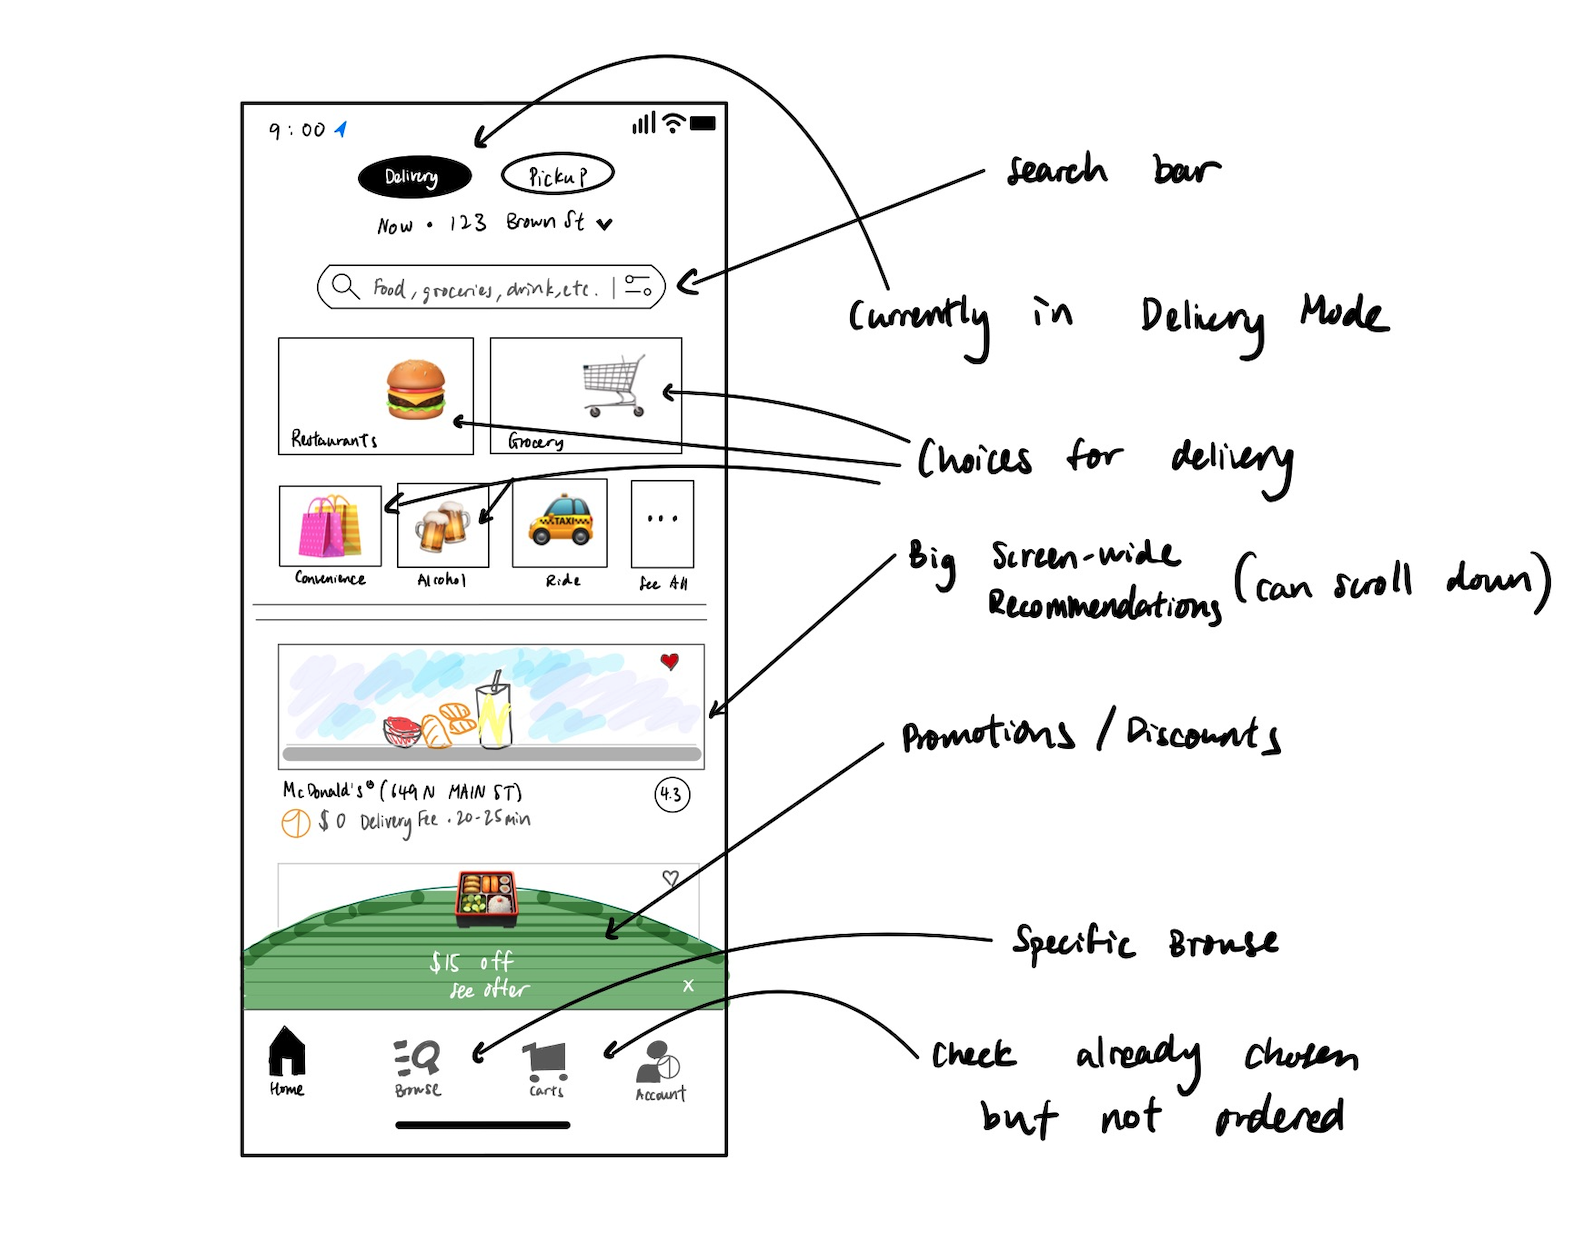 9:00
Delivery
Pickup
Now • 123 Brown St
Food, groceries, drink, etc.
Restaurants
Grocery
TAXI
Convenience
Alcohol
Ride
...
See All
McDonald's® (649 N MAIN ST)
4.3
$0 Delivery Fee • 20-25 min
$15 off
See offer
x
Home
Browse
Carts
Account
Search bar
Currently in Delivery Mode
Choices for delivery
Big Screen-wide
Recommendations (can scroll down)
Promotions / Discounts
Specific Browse
Check already chosen
but not ordered